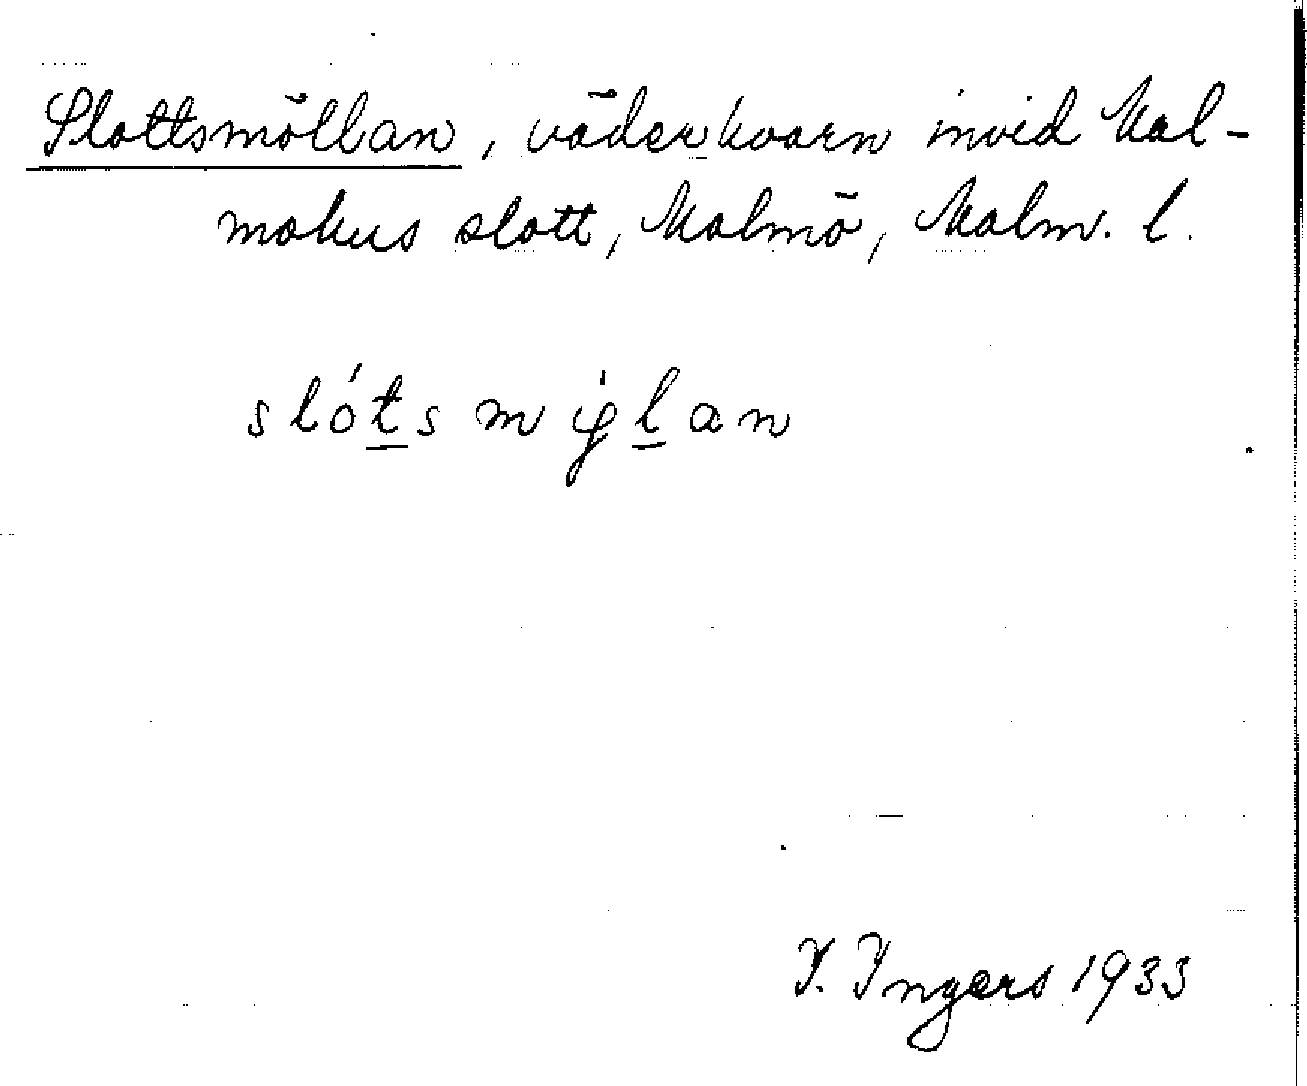 Slottsmöllan, väderkvarn invid Mal-
möhus slott, Malmö, Malm. l.
I. Ingers 1933